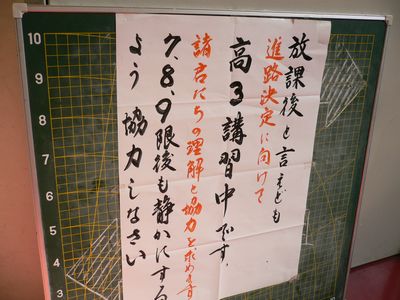 放課後と言えども
進路決定に向けて
高3講習中です。
諸君たちの理解と協力を求めます
7、8、9限後も静かにする
よう協力しなさい
10
9
8
7
6
5
4
3